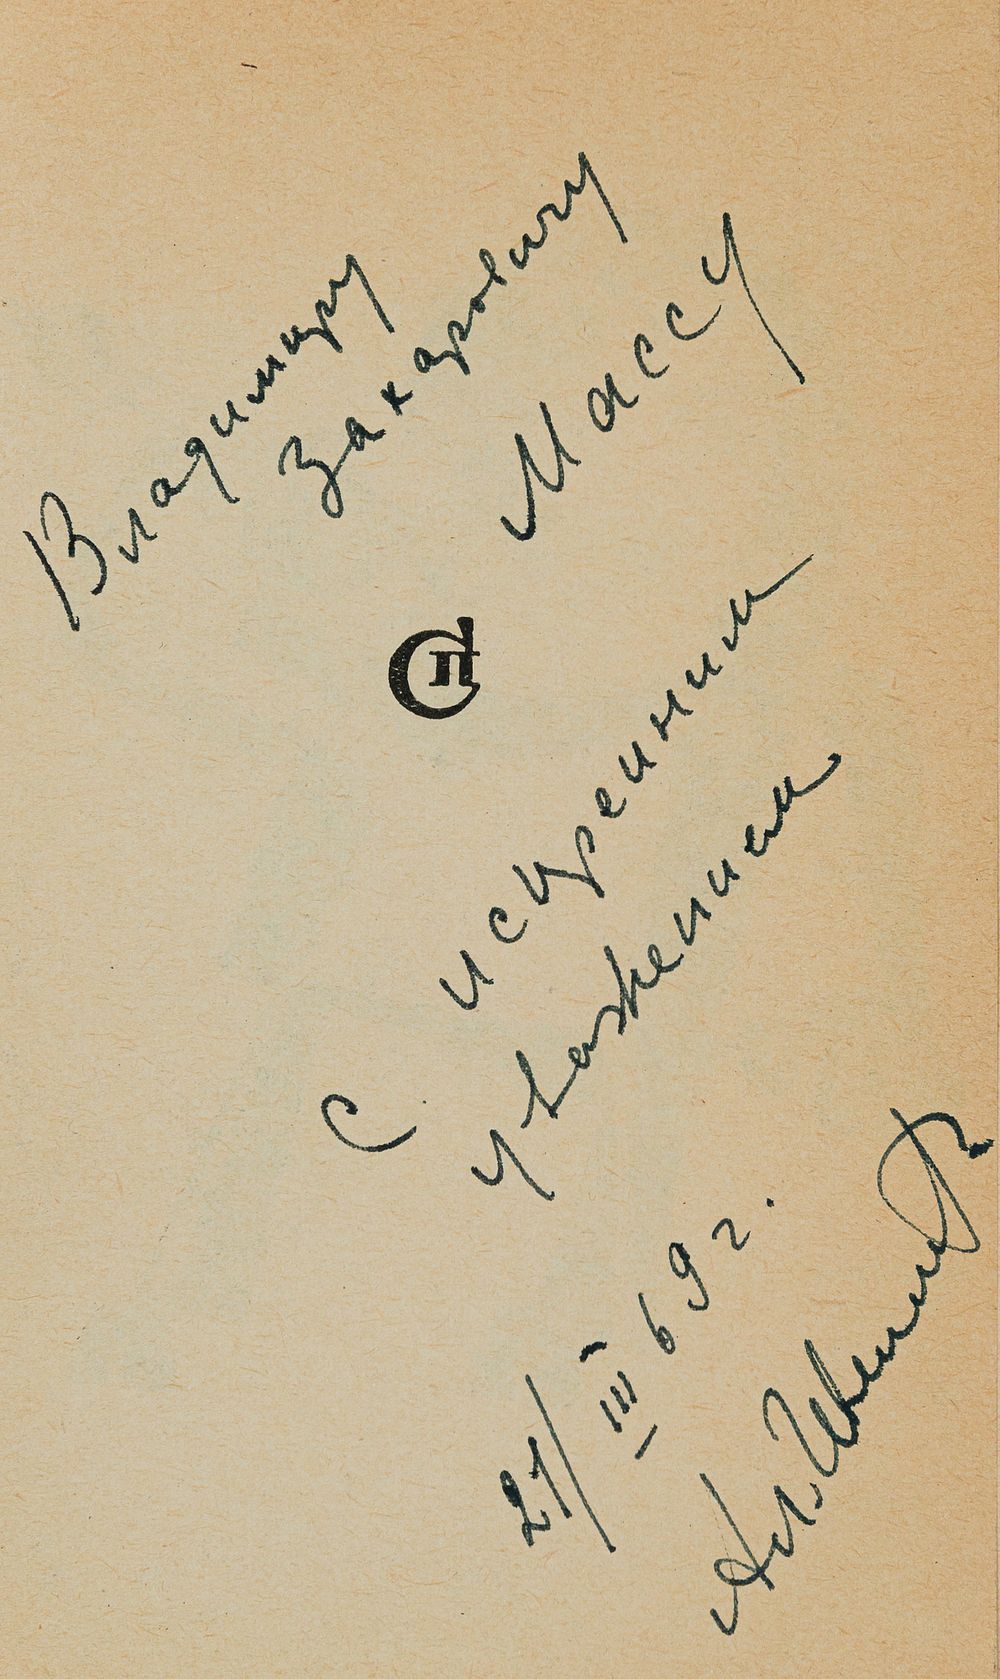 Владимиру
Захаровичу
Массу
СП
С искренним
уважением
21/III 69 г.